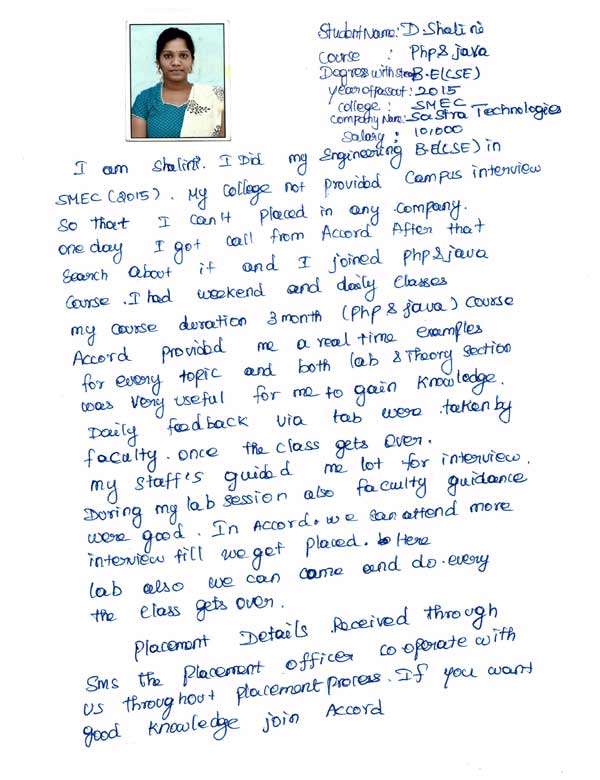 Student Name: D. Shalini
Course : Php & java
Degree with stream B.E(CSE)
year of passout : 2015
college : SMEC
company Name: Sastra Technologies
Salary : 10,000
I am Shalini. I Did my Engineering B.E(CSE) in
SMEC (2015). My college not provided Campus interview
So that I can't placed in any company.
one day I got call from Accord After that
Search about it and I joined Php & java
Course. I had weekend and daily classes
my course duration 3 month (Php & java) course
Accord provided me a real time examples
for every topic and both lab & Theory section
was very useful for me to gain knowledge.
Daily feedback via tab were taken by
faculty. once the class gets over.
my staff's guided me lot for interview.
During my lab session also faculty guidance
were good. In Accord. we can attend more
interview till we get placed. Here
lab also we can come and do. every
the class gets over.
Placement Details Received through
Sms the Placement officer co operate with
us throughout placement process. If you want
good knowledge join Accord